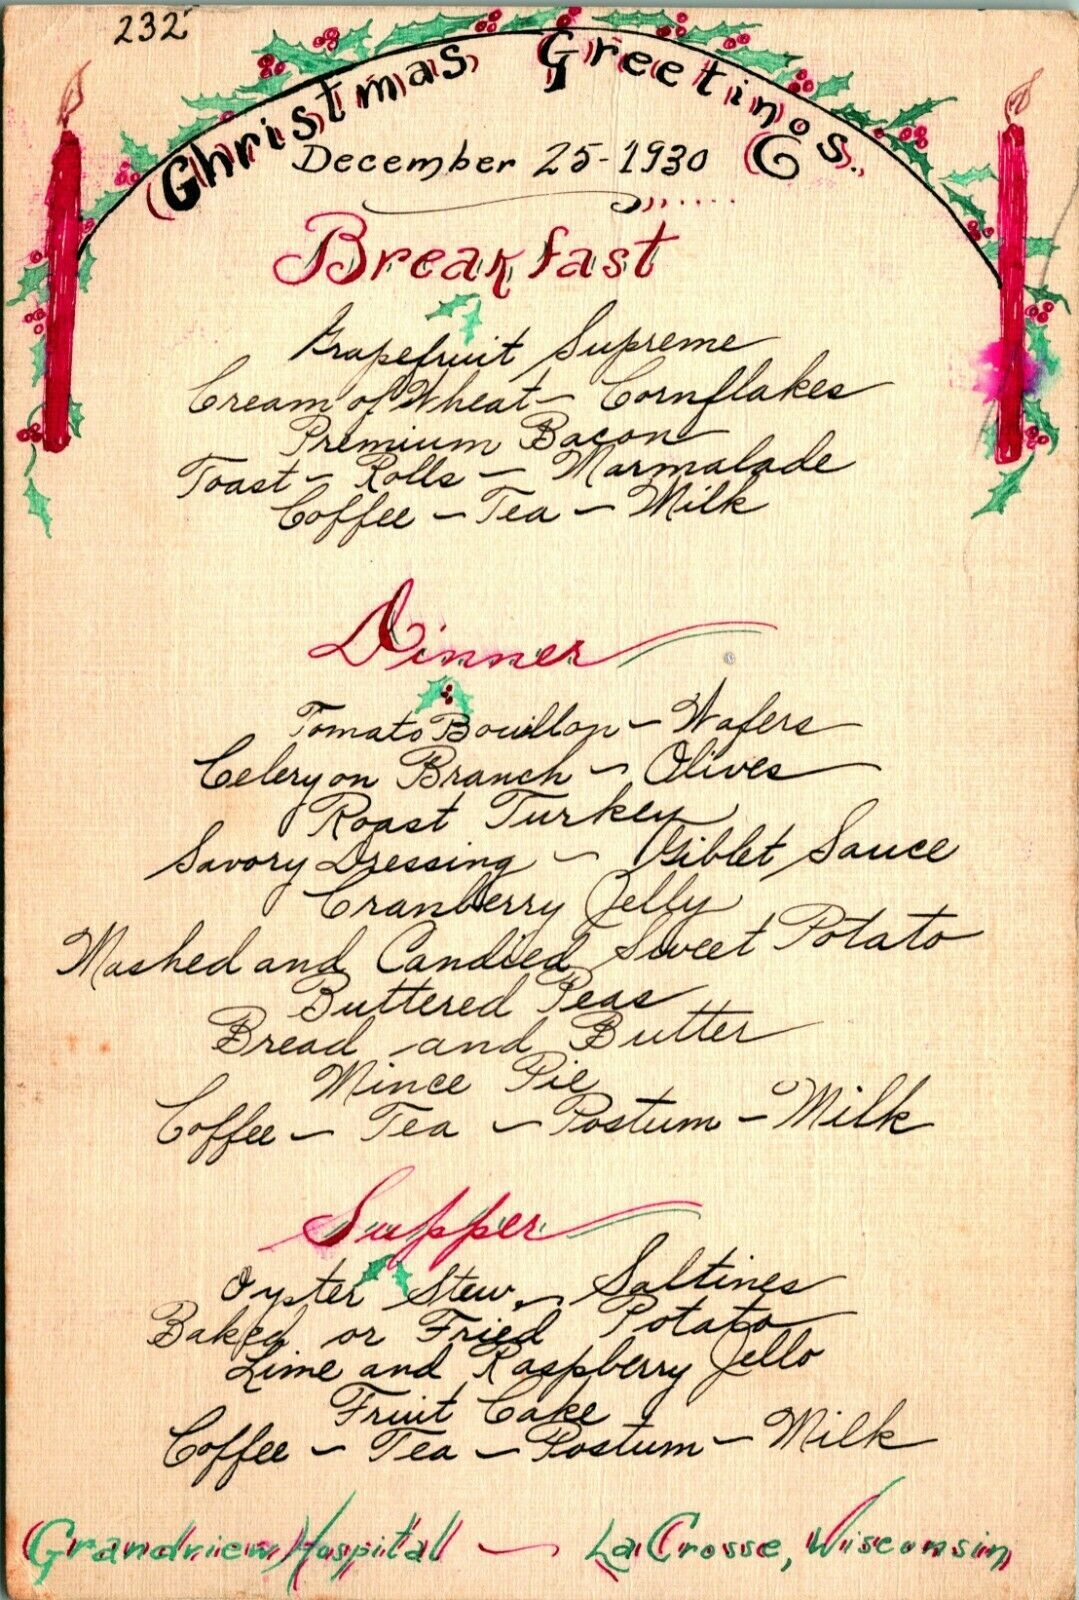 232
Christmas Greetings.
December 25-1930
Breakfast
Grapefruit Supreme
Cream of Wheat - Cornflakes
Premium Bacon
Toast - Rolls - Marmalade
Coffee - Tea - Milk
Dinner
Tomato Bouillon - Wafers
Celery on Branch - Olives
Roast Turkey
Savory Dressing - Giblet Sauce
Cranberry Jelly
Mashed and Candied Sweet Potato
Buttered Peas
Bread and Butter
Mince Pie
Coffee - Tea - Postum - Milk
Supper
Oyster Stew - Saltines
Baked or Fried Potato
Lime and Raspberry Jello
Fruit Cake
Coffee - Tea - Postum - Milk
Grandview Hospital - La Crosse, Wisconsin